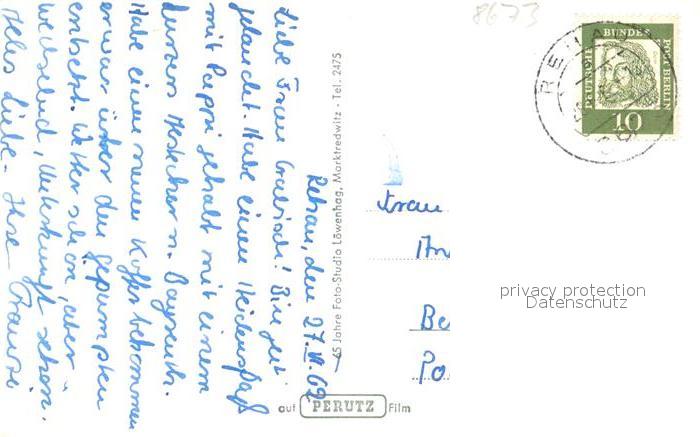 8673
REHAU
DEUTSCHE BUNDESPOST BERLIN
10
Rehau, den 27.VI.62
Liebe Frau Gratisch! Bin gut
gelandet. Habe einen Heidenspaß
mit Pappi gehabt mit einem
kurzen n. Bayreuth.
Habe einen neuen Koffer bekommen
er war über den gepumpten
entsetzt. Wetter schön, aber
wechselnd, Unterkunft schön.
Alles Liebe - Ihre
65 Jahre Foto-Studio Löwenhag, Marktredwitz - Tel. 2475
auf PERUTZ Film
Frau
Be
privacy protection
Datenschutz